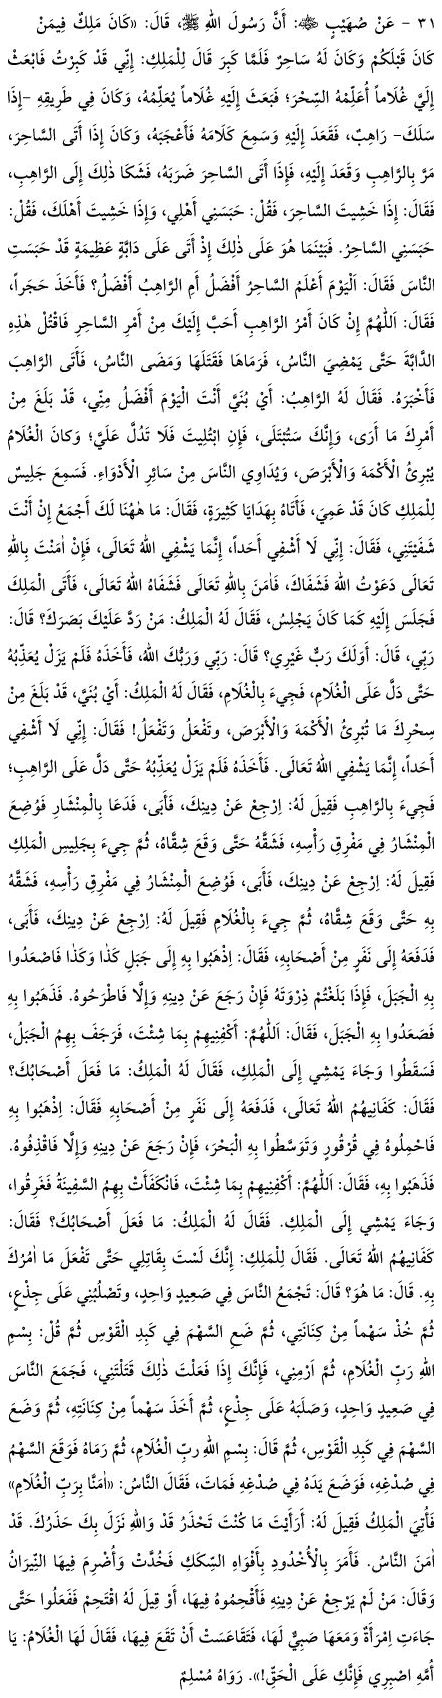 ٣١ - عَنْ صُهَيْبٍ ﷺ: أَنَّ رَسُولَ اللهِ ﷺ، قَالَ: «كَانَ مَلِكٌ فِيمَنْ
كَانَ قَبْلَكُمْ وَكَانَ لَهُ سَاحِرٌ فَلَمَّا كَبِرَ قَالَ لِلْمَلِكِ: إِنِّي قَدْ كَبِرْتُ فَابْعَثْ
إِلَيَّ غُلَاماً أُعَلِّمْهُ السِّحْرَ؛ فَبَعَثَ إِلَيْهِ غُلَاماً يُعَلِّمُهُ، وَكَانَ فِي طَرِيقِهِ -إِذَا
سَلَكَ- رَاهِبٌ، فَقَعَدَ إِلَيْهِ وَسَمِعَ كَلَامَهُ فَأَعْجَبَهُ، وَكَانَ إِذَا أَتَى السَّاحِرَ،
مَرَّ بِالرَّاهِبِ وَقَعَدَ إِلَيْهِ، فَإِذَا أَتَى السَّاحِرَ ضَرَبَهُ، فَشَكَا ذٰلِكَ إِلَى الرَّاهِبِ،
فَقَالَ: إِذَا خَشِيتَ السَّاحِرَ، فَقُلْ: حَبَسَنِي أَهْلِي، وَإِذَا خَشِيتَ أَهْلَكَ، فَقُلْ:
حَبَسَنِي السَّاحِرُ. فَبَيْنَمَا هُوَ عَلَى ذٰلِكَ إِذْ أَتَى عَلَى دَابَّةٍ عَظِيمَةٍ قَدْ حَبَسَتِ
النَّاسَ فَقَالَ: اَلْيَوْمَ أَعْلَمُ السَّاحِرُ أَفْضَلُ أَمِ الرَّاهِبُ أَفْضَلُ؟ فَأَخَذَ حَجَراً،
فَقَالَ: اَللّٰهُمَّ إِنْ كَانَ أَمْرُ الرَّاهِبِ أَحَبَّ إِلَيْكَ مِنْ أَمْرِ السَّاحِرِ فَاقْتُلْ هٰذِهِ
الدَّابَّةَ حَتَّى يَمْضِيَ النَّاسُ، فَرَمَاهَا فَقَتَلَهَا وَمَضَى النَّاسُ، فَأَتَى الرَّاهِبَ
فَأَخْبَرَهُ. فَقَالَ لَهُ الرَّاهِبُ: أَيْ بُنَيَّ أَنْتَ الْيَوْمَ أَفْضَلُ مِنِّي، قَدْ بَلَغَ مِنْ
أَمْرِكَ مَا أَرَى، وَإِنَّكَ سَتُبْتَلَى، فَإِنِ ابْتُلِيتَ فَلَا تَدُلَّ عَلَيَّ؛ وَكَانَ الْغُلَامُ
يُبْرِئُ الْأَكْمَهَ وَالْأَبْرَصَ، وَيُدَاوِي النَّاسَ مِنْ سَائِرِ الْأَدْوَاءِ. فَسَمِعَ جَلِيسٌ
لِلْمَلِكِ كَانَ قَدْ عَمِيَ، فَأَتَاهُ بِهَدَايَا كَثِيرَةٍ، فَقَالَ: مَا هٰهُنَا لَكَ أَجْمَعُ إِنْ أَنْتَ
شَفَيْتَنِي، فَقَالَ: إِنِّي لَا أَشْفِي أَحَداً، إِنَّمَا يَشْفِي اللهُ تَعَالَى، فَإِنْ اٰمَنْتَ بِاللهِ
تَعَالَى دَعَوْتُ اللهَ فَشَفَاكَ، فَاٰمَنَ بِاللهِ تَعَالَى فَشَفَاهُ اللهُ تَعَالَى، فَأَتَى الْمَلِكَ
فَجَلَسَ إِلَيْهِ كَمَا كَانَ يَجْلِسُ، فَقَالَ لَهُ الْمَلِكُ: مَنْ رَدَّ عَلَيْكَ بَصَرَكَ؟ قَالَ:
رَبِّي، قَالَ: أَوَلَكَ رَبٌّ غَيْرِي؟ قَالَ: رَبِّي وَرَبُّكَ اللهُ، فَأَخَذَهُ فَلَمْ يَزَلْ يُعَذِّبُهُ
حَتَّى دَلَّ عَلَى الْغُلَامِ، فَجِيءَ بِالْغُلَامِ، فَقَالَ لَهُ الْمَلِكُ: أَيْ بُنَيَّ، قَدْ بَلَغَ مِنْ
سِحْرِكَ مَا تُبْرِئُ الْأَكْمَهَ وَالْأَبْرَصَ، وَتَفْعَلُ وَتَفْعَلُ! فَقَالَ: إِنِّي لَا أَشْفِي
أَحَداً، إِنَّمَا يَشْفِي اللهُ تَعَالَى. فَأَخَذَهُ فَلَمْ يَزَلْ يُعَذِّبُهُ حَتَّى دَلَّ عَلَى الرَّاهِبِ؛
فَجِيءَ بِالرَّاهِبِ فَقِيلَ لَهُ: اِرْجِعْ عَنْ دِينِكَ، فَأَبَى، فَدَعَا بِالْمِنْشَارِ فَوُضِعَ
الْمِنْشَارُ فِي مَفْرِقِ رَأْسِهِ، فَشَقَّهُ حَتَّى وَقَعَ شِقَّاهُ، ثُمَّ جِيءَ بِجَلِيسِ الْمَلِكِ
فَقِيلَ لَهُ: اِرْجِعْ عَنْ دِينِكَ، فَأَبَى، فَوُضِعَ الْمِنْشَارُ فِي مَفْرِقِ رَأْسِهِ، فَشَقَّهُ
بِهِ حَتَّى وَقَعَ شِقَّاهُ، ثُمَّ جِيءَ بِالْغُلَامِ فَقِيلَ لَهُ: اِرْجِعْ عَنْ دِينِكَ، فَأَبَى،
فَدَفَعَهُ إِلَى نَفَرٍ مِنْ أَصْحَابِهِ، فَقَالَ: اِذْهَبُوا بِهِ إِلَى جَبَلِ كَذَا وَكَذَا فَاصْعَدُوا
بِهِ الْجَبَلَ، فَإِذَا بَلَغْتُمْ ذِرْوَتَهُ فَإِنْ رَجَعَ عَنْ دِينِهِ وَإِلَّا فَاطْرَحُوهُ. فَذَهَبُوا بِهِ
فَصَعَدُوا بِهِ الْجَبَلَ، فَقَالَ: اَللّٰهُمَّ: اَكْفِنِيهِمْ بِمَا شِئْتَ، فَرَجَفَ بِهِمُ الْجَبَلُ،
فَسَقَطُوا وَجَاءَ يَمْشِي إِلَى الْمَلِكِ، فَقَالَ لَهُ الْمَلِكُ: مَا فَعَلَ أَصْحَابُكَ؟
فَقَالَ: كَفَانِيهُمُ اللهُ تَعَالَى، فَدَفَعَهُ إِلَى نَفَرٍ مِنْ أَصْحَابِهِ فَقَالَ: اِذْهَبُوا بِهِ
فَاحْمِلُوهُ فِي قُرْقُورٍ وَتَوَسَّطُوا بِهِ الْبَحْرَ، فَإِنْ رَجَعَ عَنْ دِينِهِ وَإِلَّا فَاقْذِفُوهُ.
فَذَهَبُوا بِهِ، فَقَالَ: اَللّٰهُمَّ: اَكْفِنِيهِمْ بِمَا شِئْتَ، فَانْكَفَأَتْ بِهِمُ السَّفِينَةُ فَغَرِقُوا،
وَجَاءَ يَمْشِي إِلَى الْمَلِكِ. فَقَالَ لَهُ الْمَلِكُ: مَا فَعَلَ أَصْحَابُكَ؟ فَقَالَ:
كَفَانِيهُمُ اللهُ تَعَالَى. فَقَالَ لِلْمَلِكِ: إِنَّكَ لَسْتَ بِقَاتِلِي حَتَّى تَفْعَلَ مَا اٰمُرُكَ
بِهِ. قَالَ: مَا هُوَ؟ قَالَ: تَجْمَعُ النَّاسَ فِي صَعِيدٍ وَاحِدٍ، وَتَصْلُبُنِي عَلَى جِذْعٍ،
ثُمَّ خُذْ سَهْماً مِنْ كِنَانَتِي، ثُمَّ ضَعِ السَّهْمَ فِي كَبِدِ الْقَوْسِ ثُمَّ قُلْ: بِسْمِ
اللهِ رَبِّ الْغُلَامِ، ثُمَّ اَرْمِنِي، فَإِنَّكَ إِذَا فَعَلْتَ ذٰلِكَ قَتَلْتَنِي، فَجَمَعَ النَّاسَ
فِي صَعِيدٍ وَاحِدٍ، وَصَلَبَهُ عَلَى جِذْعٍ، ثُمَّ أَخَذَ سَهْماً مِنْ كِنَانَتِهِ، ثُمَّ وَضَعَ
السَّهْمَ فِي كَبِدِ الْقَوْسِ، ثُمَّ قَالَ: بِسْمِ اللهِ رَبِّ الْغُلَامِ، ثُمَّ رَمَاهُ فَوَقَعَ السَّهْمُ
فِي صُدْغِهِ، فَوَضَعَ يَدَهُ فِي صُدْغِهِ فَمَاتَ، فَقَالَ النَّاسُ: «اٰمَنَّا بِرَبِّ الْغُلَامِ»
فَأُتِيَ الْمَلِكُ فَقِيلَ لَهُ: أَرَأَيْتَ مَا كُنْتَ تَحْذَرُ قَدْ وَاللهِ نَزَلَ بِكَ حَذَرُكَ. قَدْ
اٰمَنَ النَّاسُ. فَأَمَرَ بِالْأُخْدُودِ بِأَفْوَاهِ السِّكَكِ فَخُدَّتْ وَأُضْرِمَ فِيهَا النِّيرَانُ
وَقَالَ: مَنْ لَمْ يَرْجِعْ عَنْ دِينِهِ فَأَقْحِمُوهُ فِيهَا، أَوْ قِيلَ لَهُ اقْتَحِمْ فَفَعَلُوا حَتَّى
جَاءَتِ اِمْرَأَةٌ وَمَعَهَا صَبِيٌّ لَهَا، فَتَقَاعَسَتْ أَنْ تَقَعَ فِيهَا، فَقَالَ لَهَا الْغُلَامُ: يَا
أُمَّهِ اصْبِرِي فَإِنَّكِ عَلَى الْحَقِّ!». رَوَاهُ مُسْلِمٌ